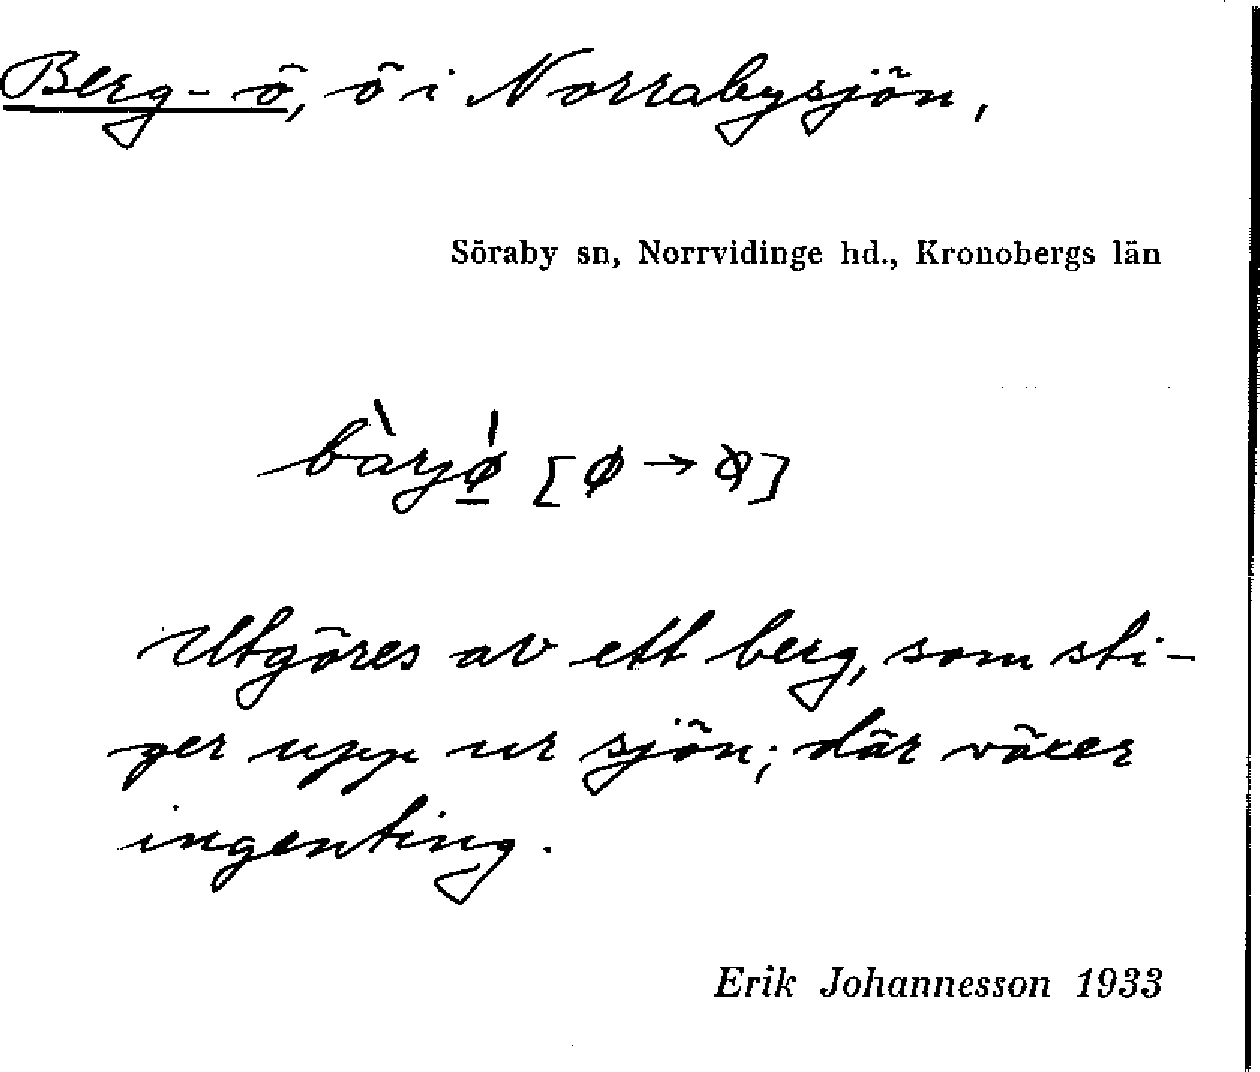 Berg-ö, ö i Norrabysjön,
Söraby sn, Norrvidinge hd., Kronobergs län
bàrjǿ̲ [ø → ꞝ]
Utgöres av ett berg, som sti-
ger upp ur sjön; där växer
ingenting.
Erik Johannesson 1933